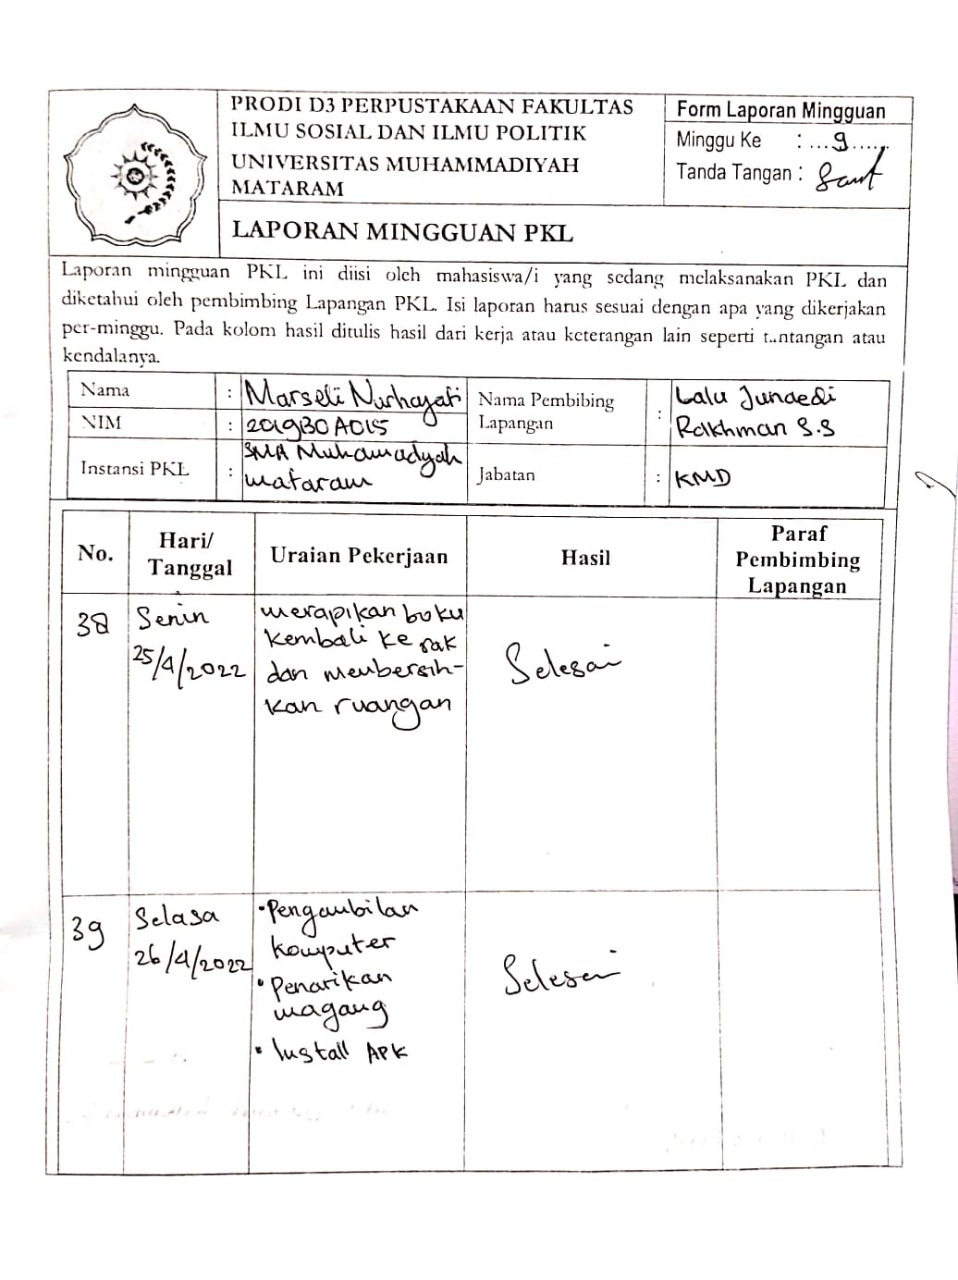 PRODI D3 PERPUSTAKAAN FAKULTAS
ILMU SOSIAL DAN ILMU POLITIK
UNIVERSITAS MUHAMMADIYAH
MATARAM
LAPORAN MINGGUAN PKL
Form Laporan Mingguan
Minggu Ke : ...9......
Tanda Tangan :
Laporan mingguan PKL ini diisi oleh mahasiswa/i yang sedang melaksanakan PKL dan
diketahui oleh pembimbing Lapangan PKL. Isi laporan harus sesuai dengan apa yang dikerjakan
per-minggu. Pada kolom hasil ditulis hasil dari kerja atau keterangan lain seperti tantangan atau
kendalanya.
Nama : Marseli Nurhayati
NIM : 2019B0A015
Instansi PKL : SMA Muhamadyah
mataram
Nama Pembibing
Lapangan : Lalu Junaedi
Rakhman S.S
Jabatan : KMD
No.
Hari/
Tanggal
Uraian Pekerjaan
Hasil
Paraf
Pembimbing
Lapangan
38
Senin
25/4/2022
merapikan buku
kembali ke rak
dan membersih-
kan ruangan
Selesai
39
Selasa
26/4/2022
• Pengambilan
komputer
• Penarikan
magang
• Install APK
Selesai